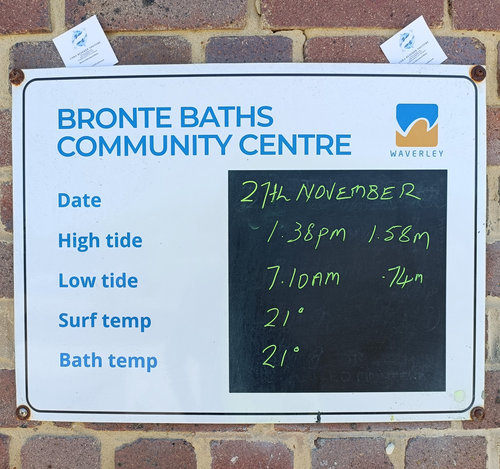 BRONTE BATHS
COMMUNITY CENTRE
WAVERLEY
Date 27th NOVEMBER
High tide 1.38pm 1.58m
Low tide 7.10AM .74m
Surf temp 21°
Bath temp 21°